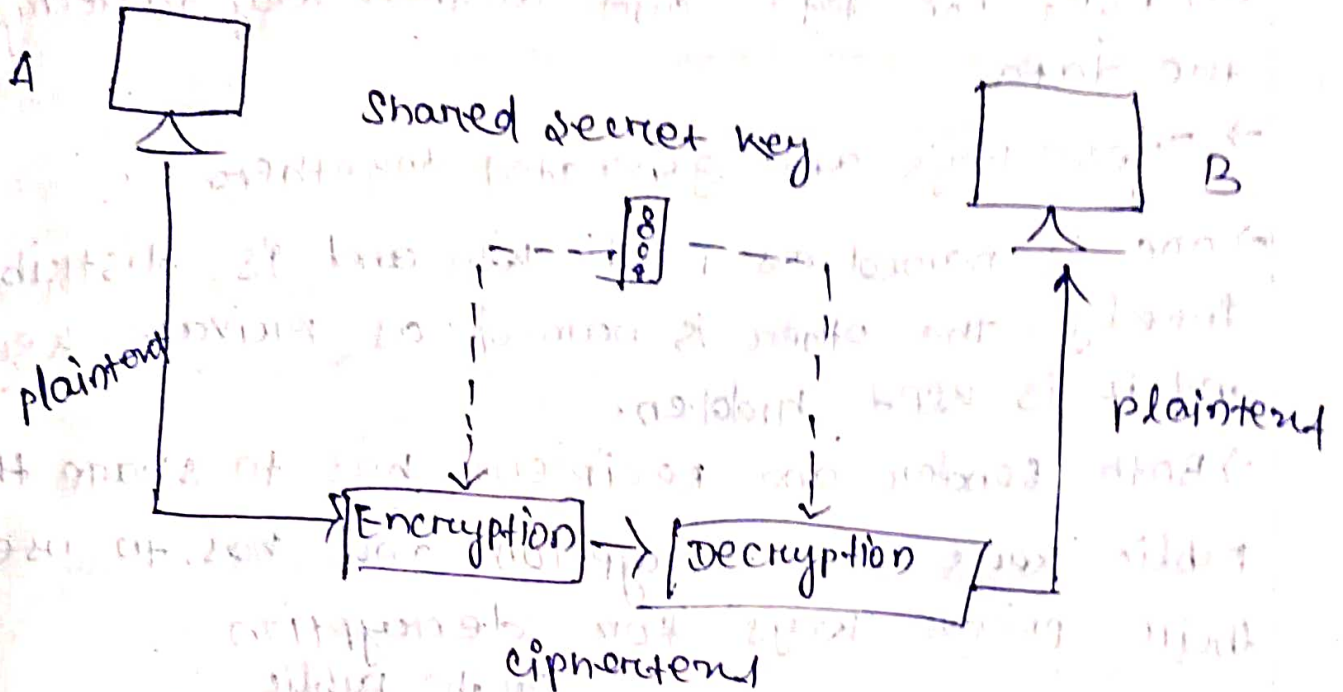 A
Shared secret key
B
plaintext
plaintext
Encryption
Decryption
ciphertext